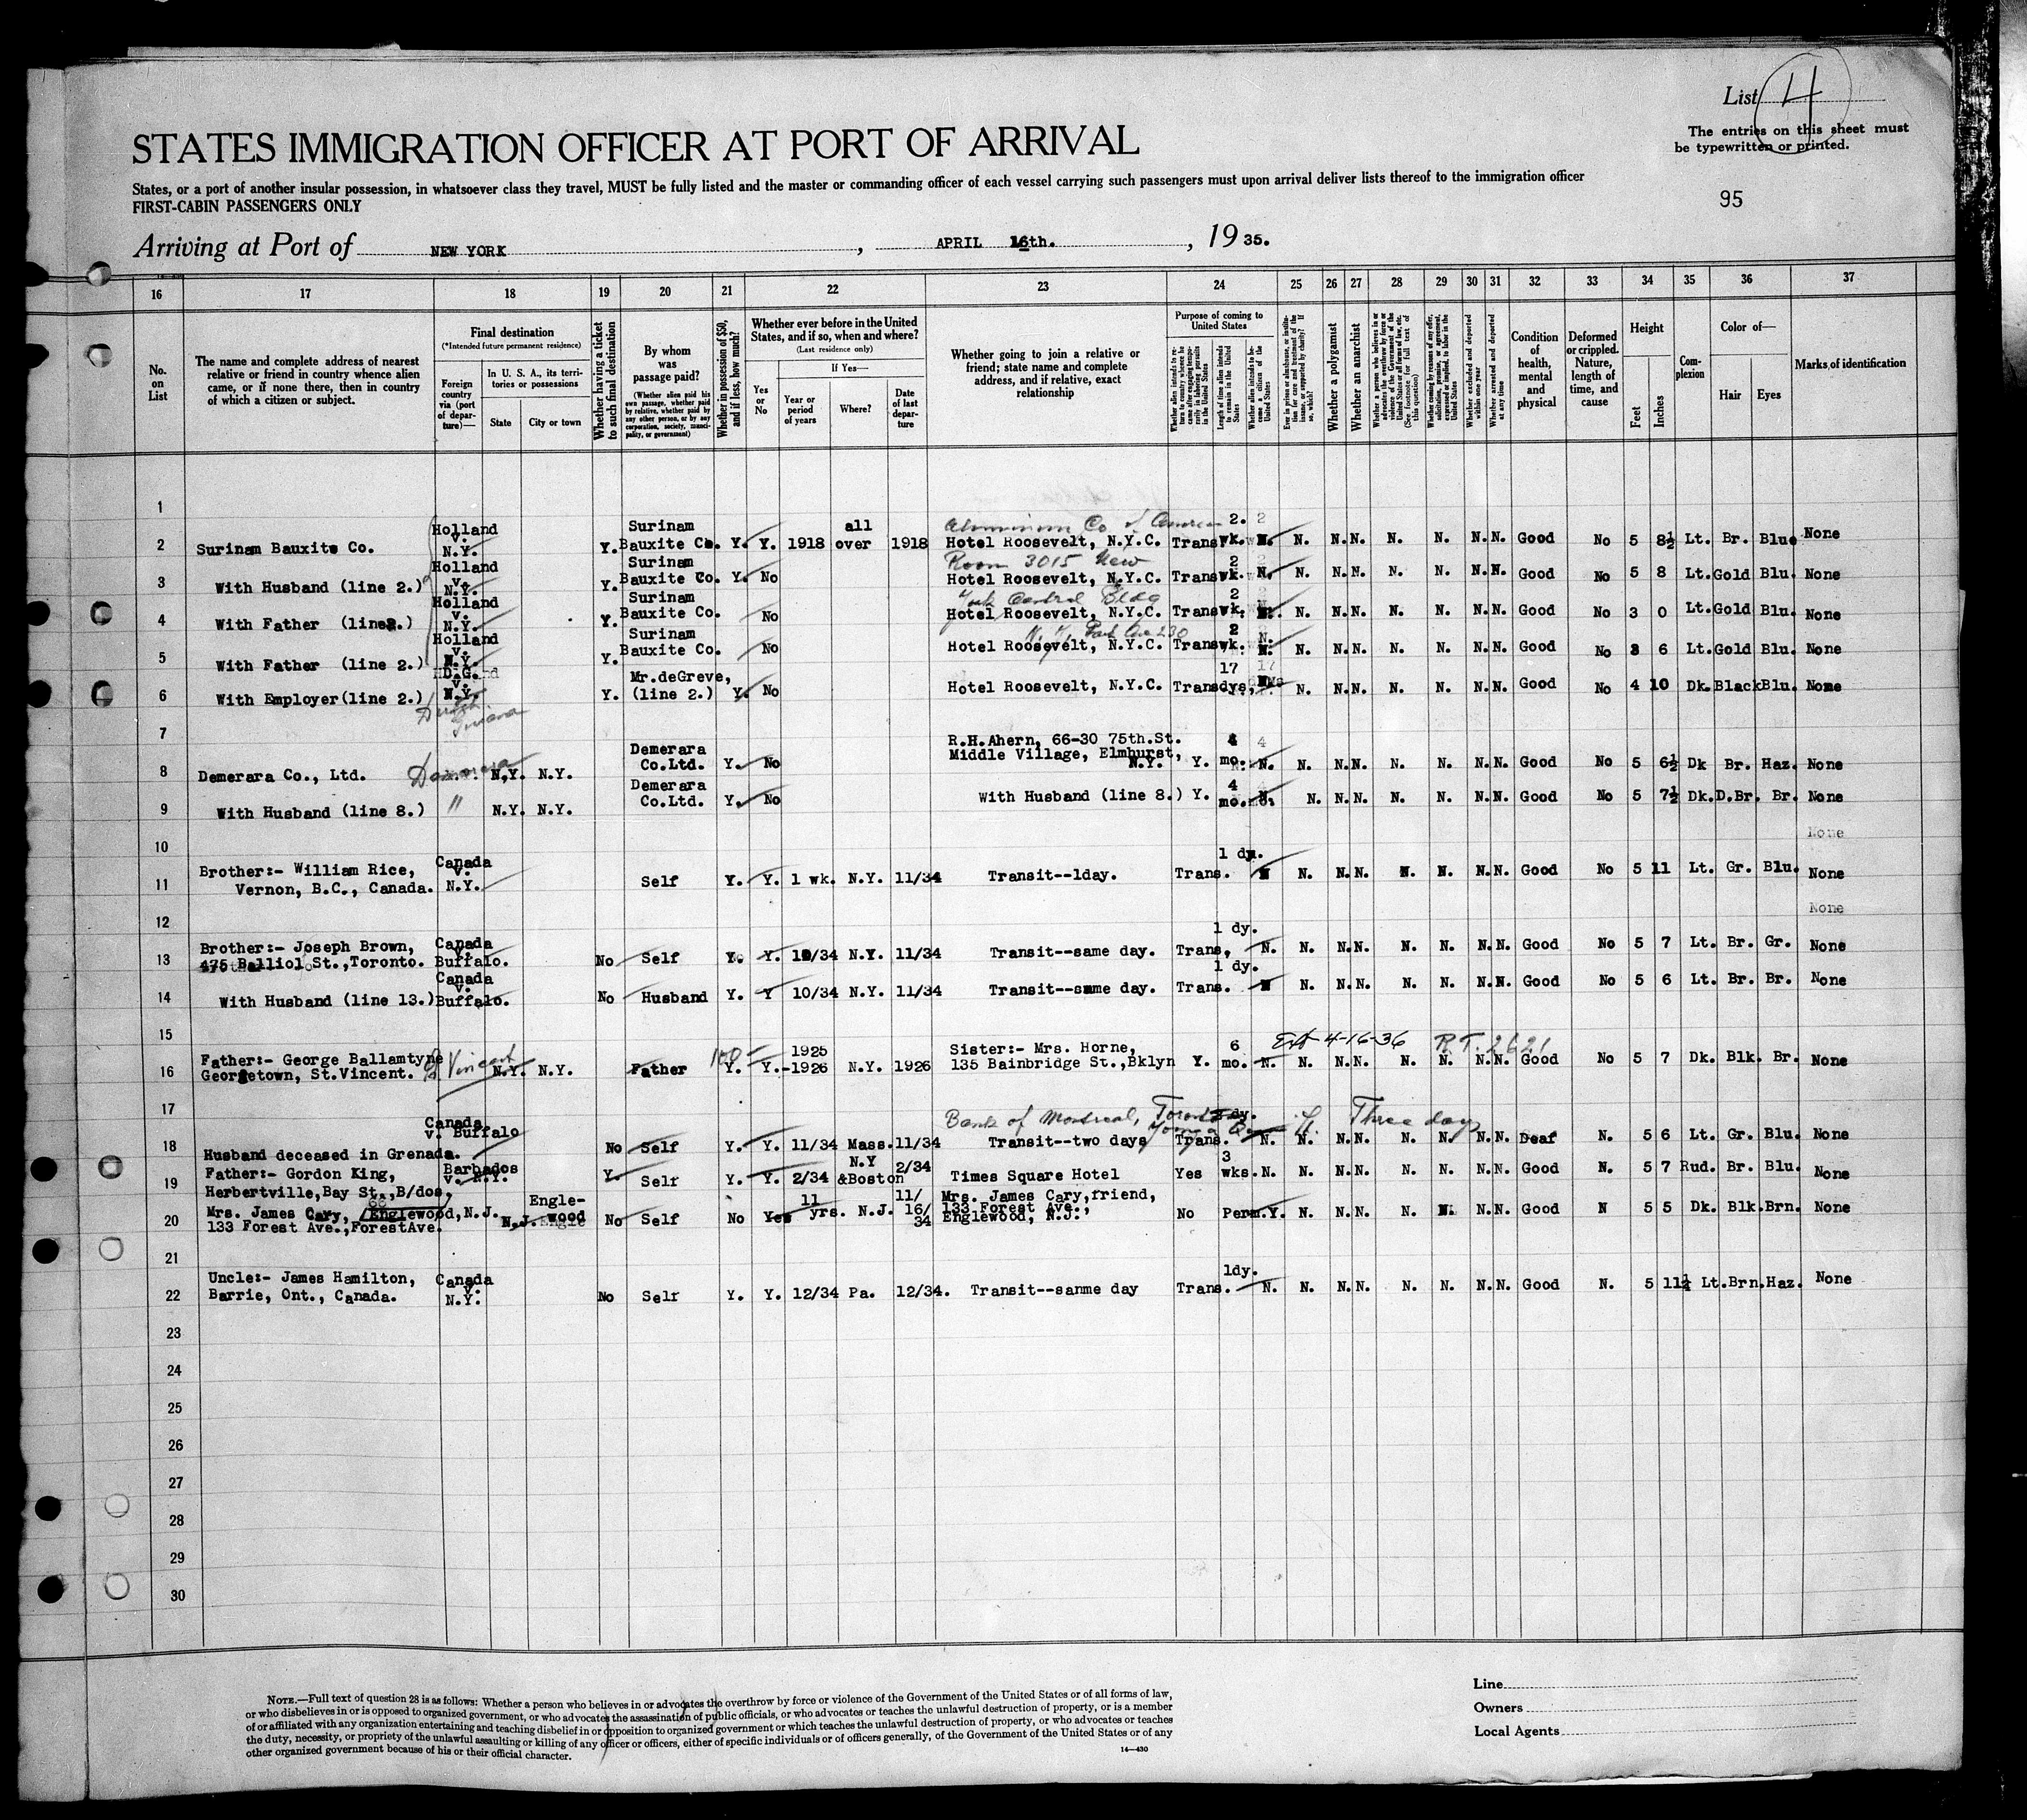 List 4
The entries on this sheet must
be typewritten or printed.
STATES IMMIGRATION OFFICER AT PORT OF ARRIVAL
95
States, or a port of another insular possession, in whatsoever class they travel, MUST be fully listed and the master or commanding officer of each vessel carrying such passengers must upon arrival deliver lists thereof to the immigration officer
FIRST-CABIN PASSENGERS ONLY
Arriving at Port of NEW YORK, APRIL 16th., 1935.
16 17 18 19 20 21 22 23 24 25 26 27 28 29 30 31 32 33 34 35 36 37
No. on List
The name and complete address of nearest
relative or friend in country whence alien
came, or if none there, then in country
of which a citizen or subject.
Final destination
(*Intended future permanent residence)
Foreign country via (port of departure)—
In U. S. A., its territories or possessions
State
City or town
Whether having a ticket to such final destination
By whom was passage paid?
(Whether alien paid his own passage, whether paid by relative, whether paid by any other person, or by any corporation, society, municipality, or government)
Whether in possession of $50, and if less, how much?
Whether ever before in the United States, and if so, when and where?
(Last residence only)
Yes or No
If Yes—
Year or period of years
Where?
Date of last departure
Whether going to join a relative or
friend; state name and complete
address, and if relative, exact
relationship
Purpose of coming to United States
Whether alien intends to return to country whence he came after engaging temporarily in laboring pursuits in the United States
Length of time alien intends to remain in the United States
Whether alien intends to become a citizen of the United States
Ever in prison or almshouse, or institution for care and treatment of the insane, or supported by charity? If so, which?
Whether a polygamist
Whether an anarchist
Whether a person who believes in or advocates the overthrow by force or violence of the Government of the United States or all forms of law, etc. (See footnote for full text of this question)
Whether coming by reason of any offer, solicitation, promise, or agreement, expressed or implied, to labor in the United States
Whether excluded and deported within one year
Whether arrested and deported at any time
Condition of health, mental and physical
Deformed or crippled. Nature, length of time, and cause
Height
Feet
Inches
Complexion
Color of—
Hair
Eyes
Marks of identification
1
2 Surinam Bauxite Co. Holland v. N.Y. Y. Surinam Bauxite Co. Y. Y. 1918 all over 1918 Aluminum Co of America Hotel Roosevelt, N.Y.C. Trans 2. wk. N. N. N. N. N. N. N. N. Good No 5 8½ Lt. Br. Blue None
3 With Husband (line 2.) Holland v. N.Y. Y. Surinam Bauxite Co. Y. No Room 3015 New Hotel Roosevelt, N.Y.C. Trans 2 wk. N. N. N. N. N. N. N. N. Good No 5 8 Lt. Gold Blu. None
4 With Father (line2.) Holland v. N.Y. Y. Surinam Bauxite Co. No York Central Bldg Hotel Roosevelt, N.Y.C. Trans 2 wk. N. N. N. N. N. N. N. N. Good No 3 0 Lt. Gold Blu. None
5 With Father (line 2.) Holland v. N.Y. Y. Surinam Bauxite Co. No N. Y. Park Ave 230 Hotel Roosevelt, N.Y.C. Trans 2 wk. N. N. N. N. N. N. N. N. Good No 3 6 Lt. Gold Blu. None
6 With Employer(line 2.) D.G. v. N.Y. Y. Mr.deGreve, (line 2.) Y. No Hotel Roosevelt, N.Y.C. Trans 17 dys, N. N. N. N. N. N. N. Good No 4 10 Dk. Black Blu. None
Dutch Guiana
7
8 Demerara Co., Ltd. Demerara N.Y. N.Y. Demerara Co.Ltd. Y. No R.H.Ahern, 66-30 75th.St. Middle Village, Elmhurst, N.Y. Y. 4 mo. N. N. N. N. N. N. N. N. Good No 5 6½ Dk Br. Haz. None
9 With Husband (line 8.) " N.Y. N.Y. Demerara Co.Ltd. Y. No With Husband (line 8.) Y. 4 mo. N. N. N. N. N. N. N. N. Good No 5 7½ Dk. D.Br. Br. None
None
10
11 Brother:- William Rice, Vernon, B.C., Canada. Canada v. N.Y. Self Y. Y. 1 wk. N.Y. 11/34 Transit--1day. Trans. 1 dy. N N. N. N. N. N. N. N. Good No 5 11 Lt. Gr. Blu. None
None
12
13 Brother:- Joseph Brown, 475 Balliol St.,Toronto. Canada v. Buffalo. No Self Y. Y. 10/34 N.Y. 11/34 Transit--same day. Trans, 1 dy. N. N. N. N. N. N. N. N. Good No 5 7 Lt. Br. Gr. None
14 With Husband (line 13.) Canada v. Buffalo. No Husband Y. Y 10/34 N.Y. 11/34 Transit--same day. Trans. 1 dy. N N. N. N. N. N. N. N. Good No 5 6 Lt. Br. Br. None
15
Ext 4-16-36 R.T. 2621
16 Father:- George Ballamtyne Georgetown, St.Vincent. St Vincent N.Y. N.Y. Father 150 Y. Y. 1925 -1926 N.Y. 1926 Sister:- Mrs. Horne, 135 Bainbridge St.,Bklyn Y. 6 mo. N. N. N. N. N. N. N. N. Good No 5 7 Dk. Blk. Br. None
17
Bank of Montreal, Toronto Three days
18 Husband deceased in Grenada. Canada v. Buffalo No Self Y. Y. 11/34 Mass. 11/34 Transit--two days Trans. dy. N. N. N. N. N. N. N. N. Deaf N. 5 6 Lt. Gr. Blu. None
19 Father:- Gordon King, Herbertville,Bay St.,B/dos, Barbados v. N.Y. Y. Self Y. Y. 2/34 N.Y &Boston 2/34 Times Square Hotel Yes 3 wks. N. N. N. N. N. N. N. N. Good N. 5 7 Rud. Br. Blu. None
20 Mrs. James Cary, Englewood, N.J. 133 Forest Ave.,ForestAve. N.J. Engle-wood No Self No Yes 11 yrs. N.J. 11/16/34 Mrs. James Cary,friend, 133 Forest Ave., Englewood, N.J. No Perm. Y. N. N. N. N. N. N. N. Good N 5 5 Dk. Blk. Brn. None
21
22 Uncle:- James Hamilton, Barrie, Ont., Canada. Canada v. N.Y. No Self Y. Y. 12/34 Pa. 12/34. Transit--sanme day Trans. 1dy. N. N. N. N. N. N. N. N. Good N. 5 11½ Lt. Brn. Haz. None
23
24
25
26
27
28
29
30
Line
Owners
Local Agents
NOTE.—Full text of question 28 is as follows: Whether a person who believes in or advocates the overthrow by force or violence of the Government of the United States or of all forms of law,
or who disbelieves in or is opposed to organized government, or who advocates the assassination of public officials, or who advocates or teaches the unlawful destruction of property, or is a member
of or affiliated with any organization entertaining and teaching disbelief in or opposition to organized government or which teaches the unlawful destruction of property, or who advocates or teaches
the duty, necessity, or propriety of the unlawful assaulting or killing of any officer or officers, either of specific individuals or of officers generally, of the Government of the United States or of any
other organized government because of his or their official character.
14—430